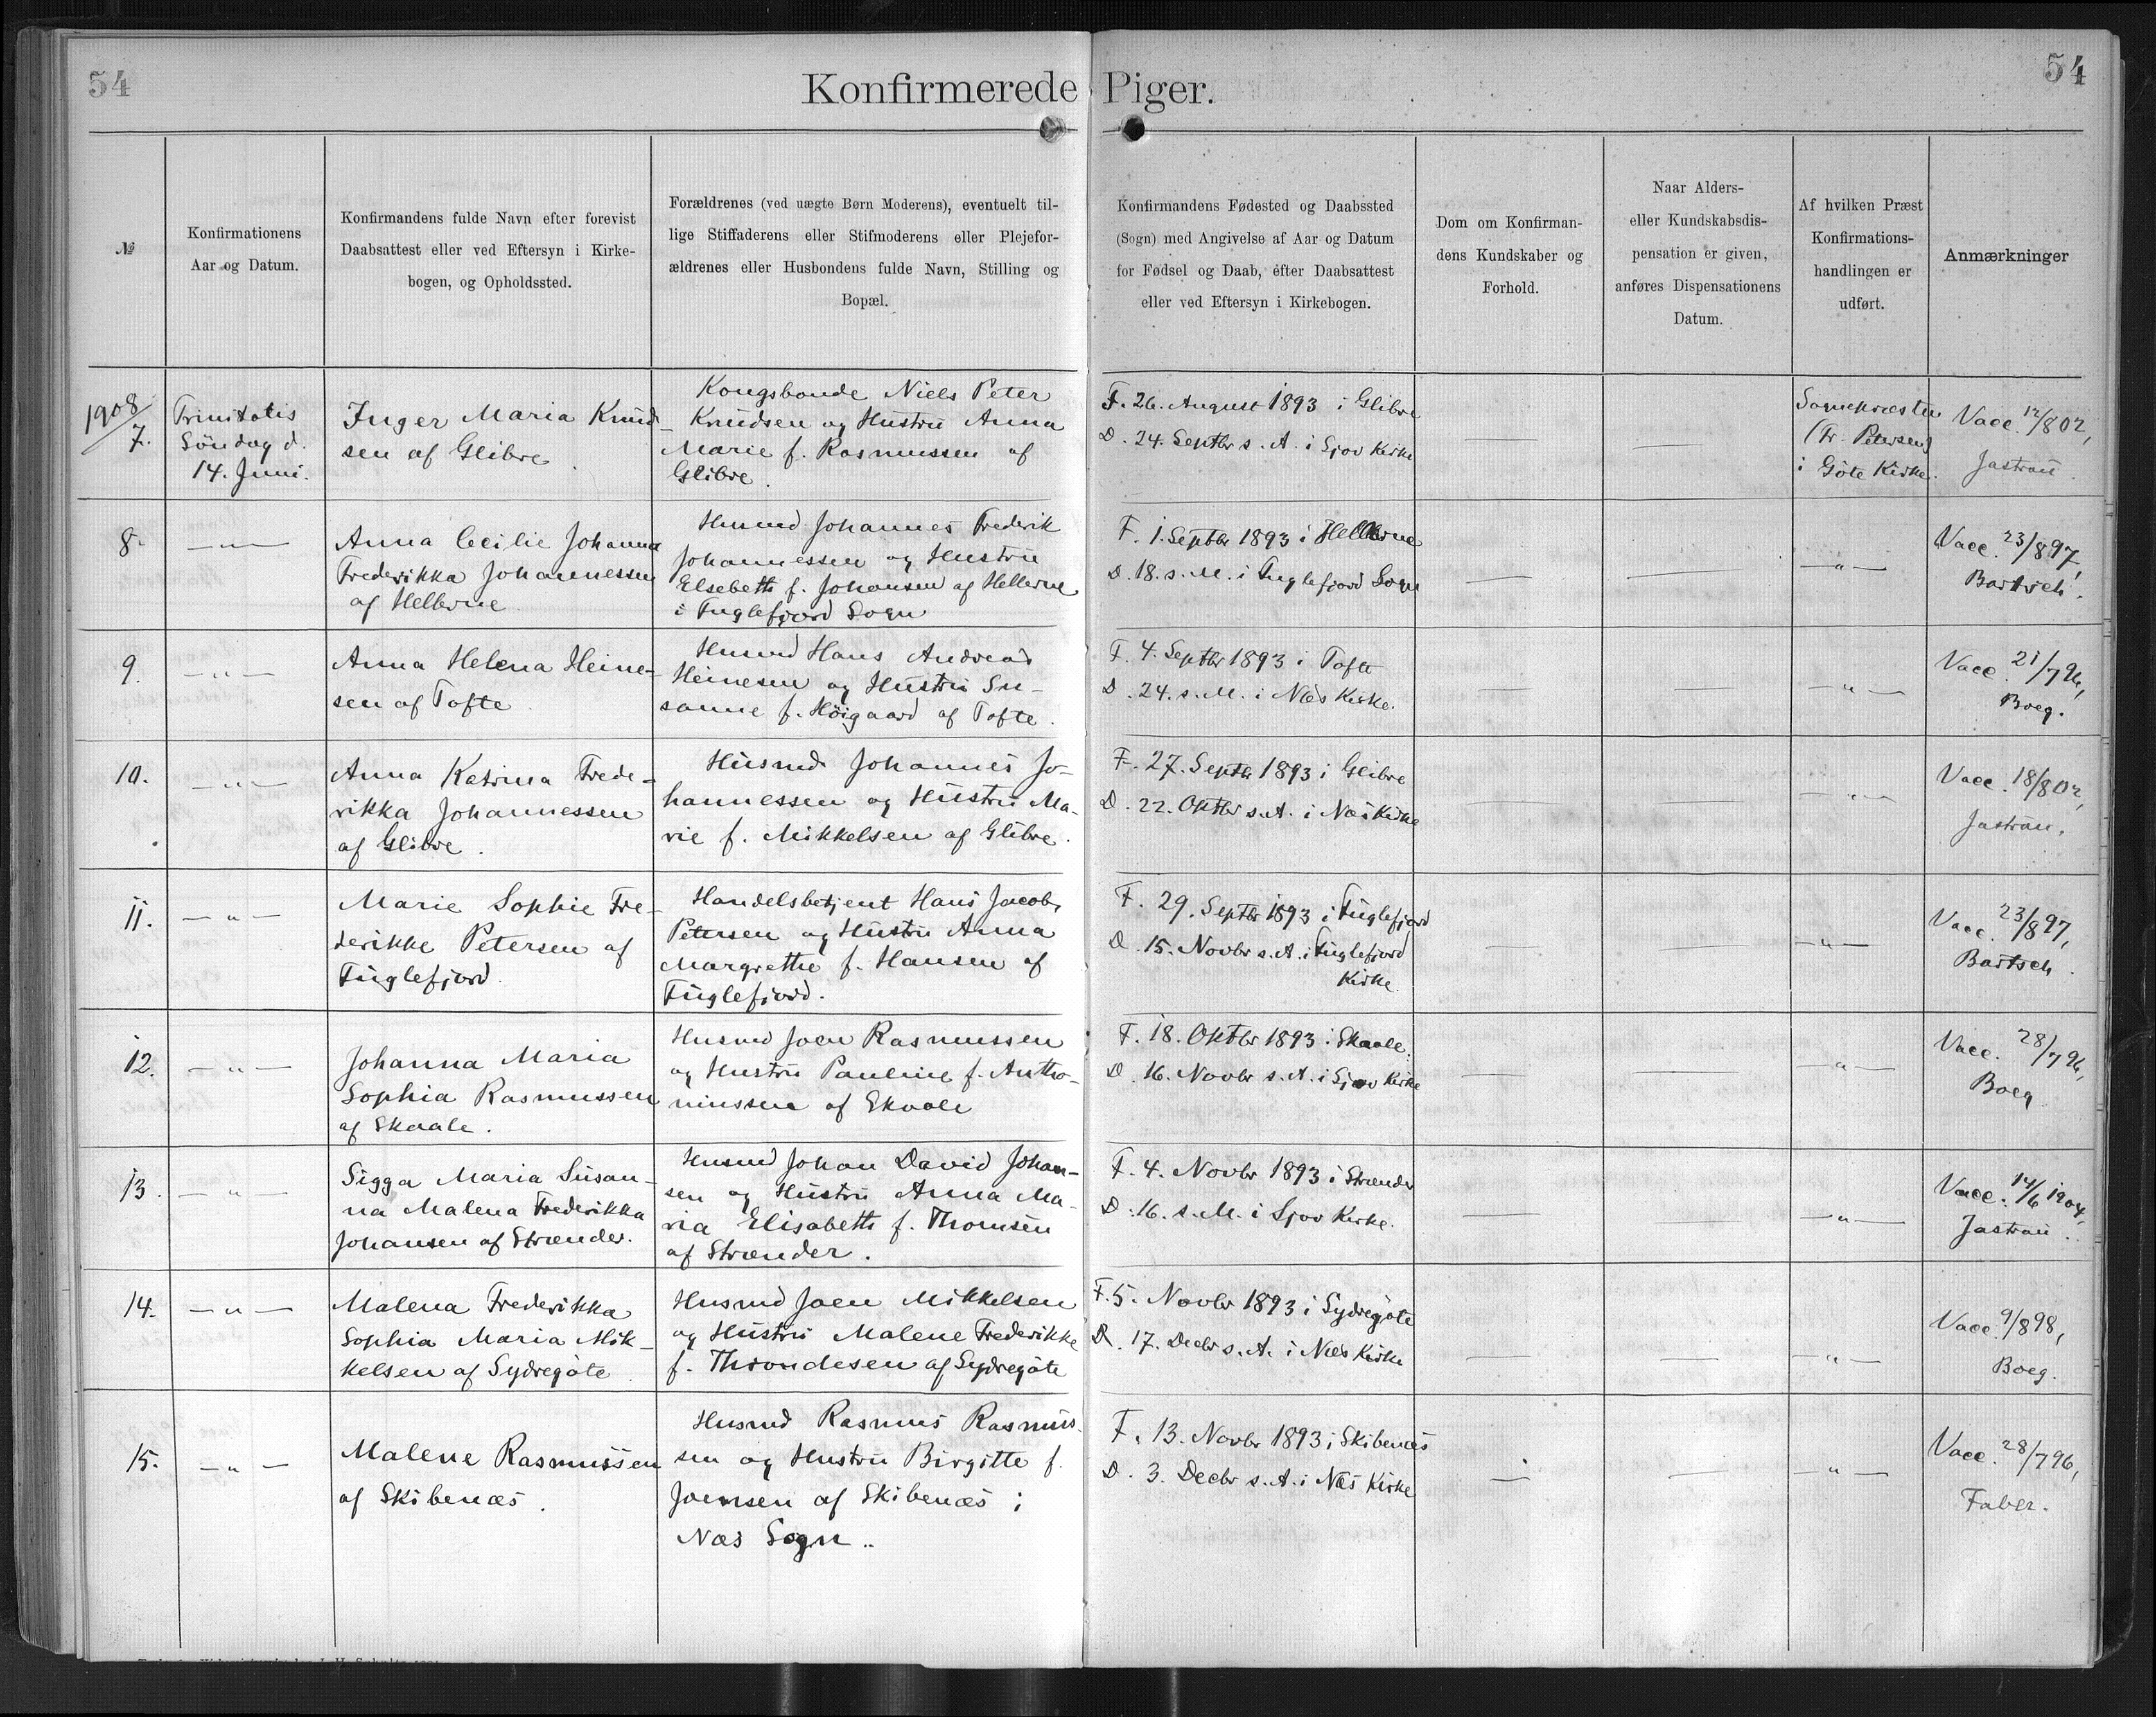 54
Konfirmerede Piger.
54
№
Konfirmationens
Aar og Datum.
Konfirmandens fulde Navn efter forevist
Daabsattest eller ved Eftersyn i Kirke-
bogen, og Opholdssted.
Forældrenes (ved uægte Børn Moderens), eventuelt til-
lige Stiffaderens eller Stifmoderens eller Plejefor-
ældrenes eller Husbondens fulde Navn, Stilling og
Bopæl.
Konfirmandens Fødested og Daabssted
(Sogn) med Angivelse af Aar og Datum
for Fødsel og Daab, efter Daabsattest
eller ved Eftersyn i Kirkebogen.
Dom om Konfirman-
dens Kundskaber og
Forhold.
Naar Alders-
eller Kundskabsdis-
pensation er given,
anføres Dispensationens
Datum.
Af hvilken Præst
Konfirmations-
handlingen er
udført.
Anmærkninger
1908/
7.
Trinitatis
Söndag d.
14. Juni.
Inger Maria Knud-
sen af Glibre
Kongsbonde Niels Peter
Knudsen og Hustru Anna
Marie f. Rasmussen af
Glibre.
F. 26. August 1893 i Glibre
D. 24. Septbr s. A. i Sjov Kirke
—
—
Sognepræsten
(Fr. Petersen)
i Göte Kirke.
Vacc. 12/8 02,
Jastrau.
8.
— " —
Anna Cecilie Johanna
Frederikka Johannessen
af Hellerne
Husmd Johannes Frederik
Johannessen og Hustru
Elsebeth f. Johansen af Hellerne
i Fuglefjord Sogn
F. 1. Septbr 1893 i Hellerne
D. 18. s. M. i Fuglefjord Sogn
—
—
— " —
Vacc. 23/8 97,
Bartsch.
9.
— " —
Anna Helena Heine-
sen af Tofte.
Husmd Hans Andreas
Heinesen og Hustru Su-
sanne f. Höigaard af Tofte.
F. 4. Septbr 1893 i Tofte
D. 24. s. M. i Næs Kirke.
—
—
— " —
Vacc. 21/7 96,
Boeg.
10.
— " —
Anna Katrina Frede-
rikka Johannessen
af Glibre.
Husmd Johannes Jo-
hannessen og Hustru Ma-
rie f. Mikkelsen af Glibre.
F. 27. Septbr 1893 i Glibre
D. 22. Oktbr s. A. i Næs Kirke
—
—
— " —
Vacc. 18/8 02,
Jastrau.
11.
— " —
Marie Sophie Fre-
derikke Petersen af
Fuglefjord.
Handelsbetjent Hans Jacob
Petersen og Hustru Anna
Margrethe f. Hansen af
Fuglefjord.
F. 29. Septbr 1893 i Fuglefjord
D. 15. Novbr s. A. i Fuglefjord
Kirke.
—
—
— " —
Vacc. 23/8 97,
Bartsch.
12.
— " —
Johanna Maria
Sophia Rasmussen
af Skaale.
Husmd Joen Rasmussen
og Hustru Pauline f. Antho-
niussen af Skaale
F. 18. Oktbr 1893 i Skaale.
D. 16. Novbr s. A. i Sjov Kirke
—
—
— " —
Vacc. 28/7 96,
Boeg
13.
— " —
Sigga Maria Susan-
na Malena Frederikka
Johansen af Strænder.
Husmd Johan David Johan-
sen og Hustru Anna Ma-
ria Elisabeth f. Thomsen
af Strænder.
F. 4. Novbr 1893 i Strænder
D. 16. s. M. i Sjov Kirke.
—
—
— " —
Vacc. 14/6 1904,
Jastrau.
14.
— " —
Malena Frederikka
Sophia Maria Mik-
kelsen af Sydregöte.
Husmd Joen Mikkelsen
og Hustru Malene Frederikke
f. Throndesen af Sydregöte
F. 5. Novbr 1893 i Sydregöte
D. 17. Decbr s. A. i Næs Kirke
—
—
— " —
Vacc. 9/8 98,
Boeg.
15.
— " —
Malene Rasmussen
af Skibenæs.
Husmd Rasmus Rasmus-
sen og Hustru Birgitte f.
Joensen af Skibenæs i
Næs Sogn.
F. 13. Novbr 1893 i Skibenæs
D. 3. Decbr s. A. i Næs Kirke
—
—
— " —
Vacc. 28/7 96,
Faber.